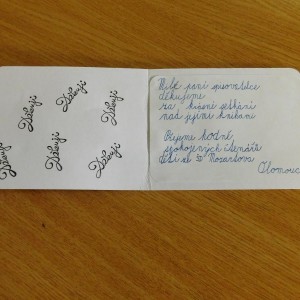 Děkuji
Děkuji
Děkuji
Děkuji
Děkuji
Děkuji
Děkuji
Milé paní spisovatelce
děkujeme
za krásné setkání
nad jejími knihami
Přejeme hodně
spokojených čtenářů
děti ze ZŠ Mozartova
Olomouc